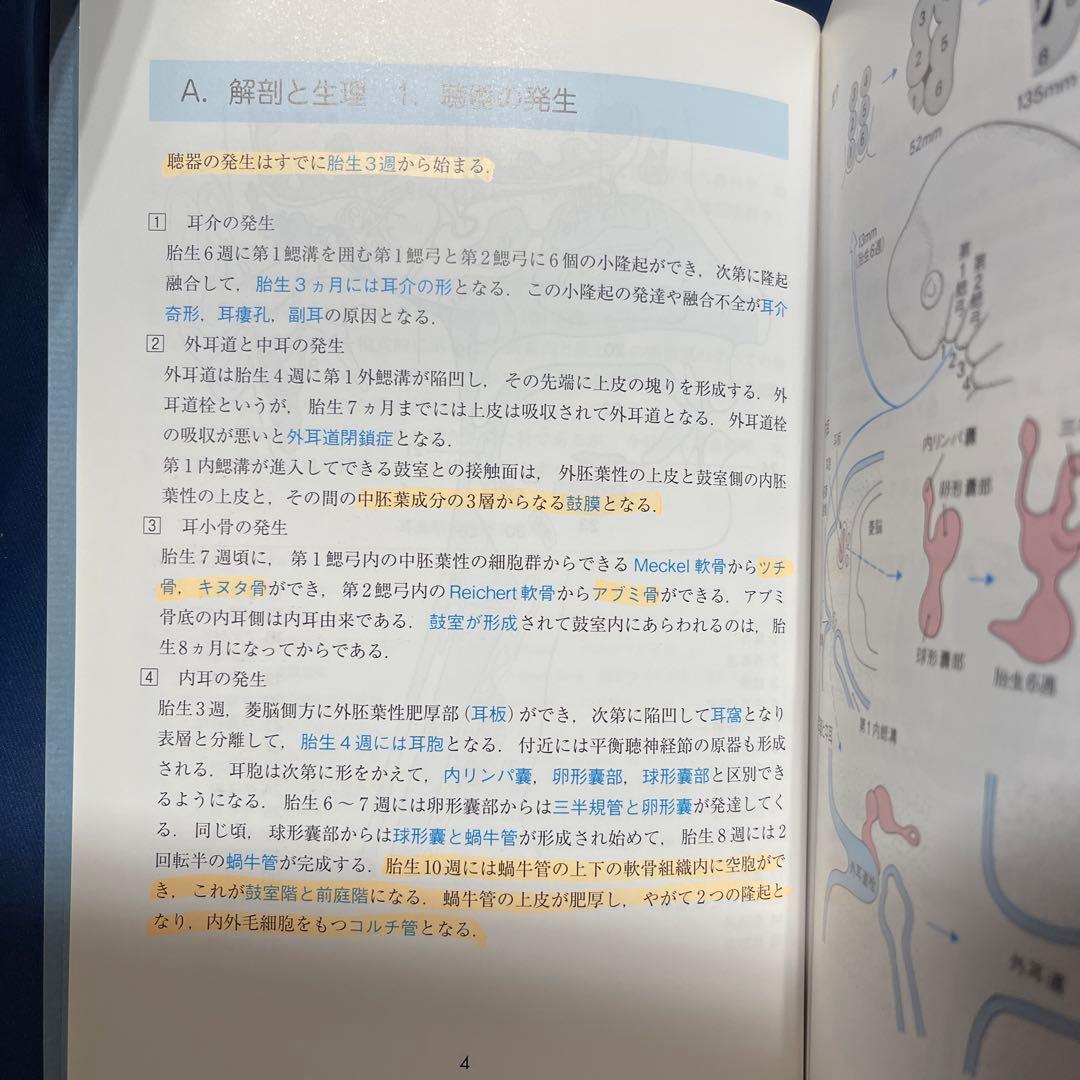 A. 解剖と生理　1. 聴器の発生
聴器の発生はすでに胎生3週から始まる.
1 耳介の発生
胎生6週に第1鰓溝を囲む第1鰓弓と第2鰓弓に6個の小隆起ができ, 次第に隆起
融合して, 胎生3ヵ月には耳介の形となる. この小隆起の発達や融合不全が耳介
奇形, 耳瘻孔, 副耳の原因となる.
2 外耳道と中耳の発生
外耳道は胎生4週に第1外鰓溝が陥凹し, その先端に上皮の塊りを形成する. 外
耳道栓というが, 胎生7ヵ月までには上皮は吸収されて外耳道となる. 外耳道栓
の吸収が悪いと外耳道閉鎖症となる.
第1内鰓溝が進入してできる鼓室との接触面は, 外胚葉性の上皮と鼓室側の内胚
葉性の上皮と, その間の中胚葉成分の3層からなる鼓膜となる.
3 耳小骨の発生
胎生7週頃に, 第1鰓弓内の中胚葉性の細胞群からできる Meckel 軟骨からツチ
骨, キヌタ骨ができ, 第2鰓弓内の Reichert 軟骨からアブミ骨ができる. アブミ
骨底の内耳側は内耳由来である. 鼓室が形成されて鼓室内にあらわれるのは, 胎
生8ヵ月になってからである.
4 内耳の発生
胎生3週, 菱脳側方に外胚葉性肥厚部 (耳板) ができ, 次第に陥凹して耳窩となり
表層と分離して, 胎生4週には耳胞となる. 付近には平衡聴神経節の原器も形成
される. 耳胞は次第に形をかえて, 内リンパ嚢, 卵形嚢部, 球形嚢部と区別でき
るようになる. 胎生6〜7週には卵形嚢部からは三半規管と卵形嚢が発達してく
る. 同じ頃, 球形嚢部からは球形嚢と蝸牛管が形成され始めて, 胎生8週には2
回転半の蝸牛管が完成する. 胎生10週には蝸牛管の上下の軟骨組織内に空胞がで
き, これが鼓室階と前庭階になる. 蝸牛管の上皮が肥厚し, やがて2つの隆起と
なり, 内外毛細胞をもつコルチ管となる.
4
3
2
5
1
6
6
52mm
135mm
13mm
(胎生6週)
第1鰓弓
第2鰓弓
1
2
3
4
内リンパ嚢
卵形嚢部
菱脳
球形嚢部
胎生6週
第1内鰓溝
外耳道栓
外耳道